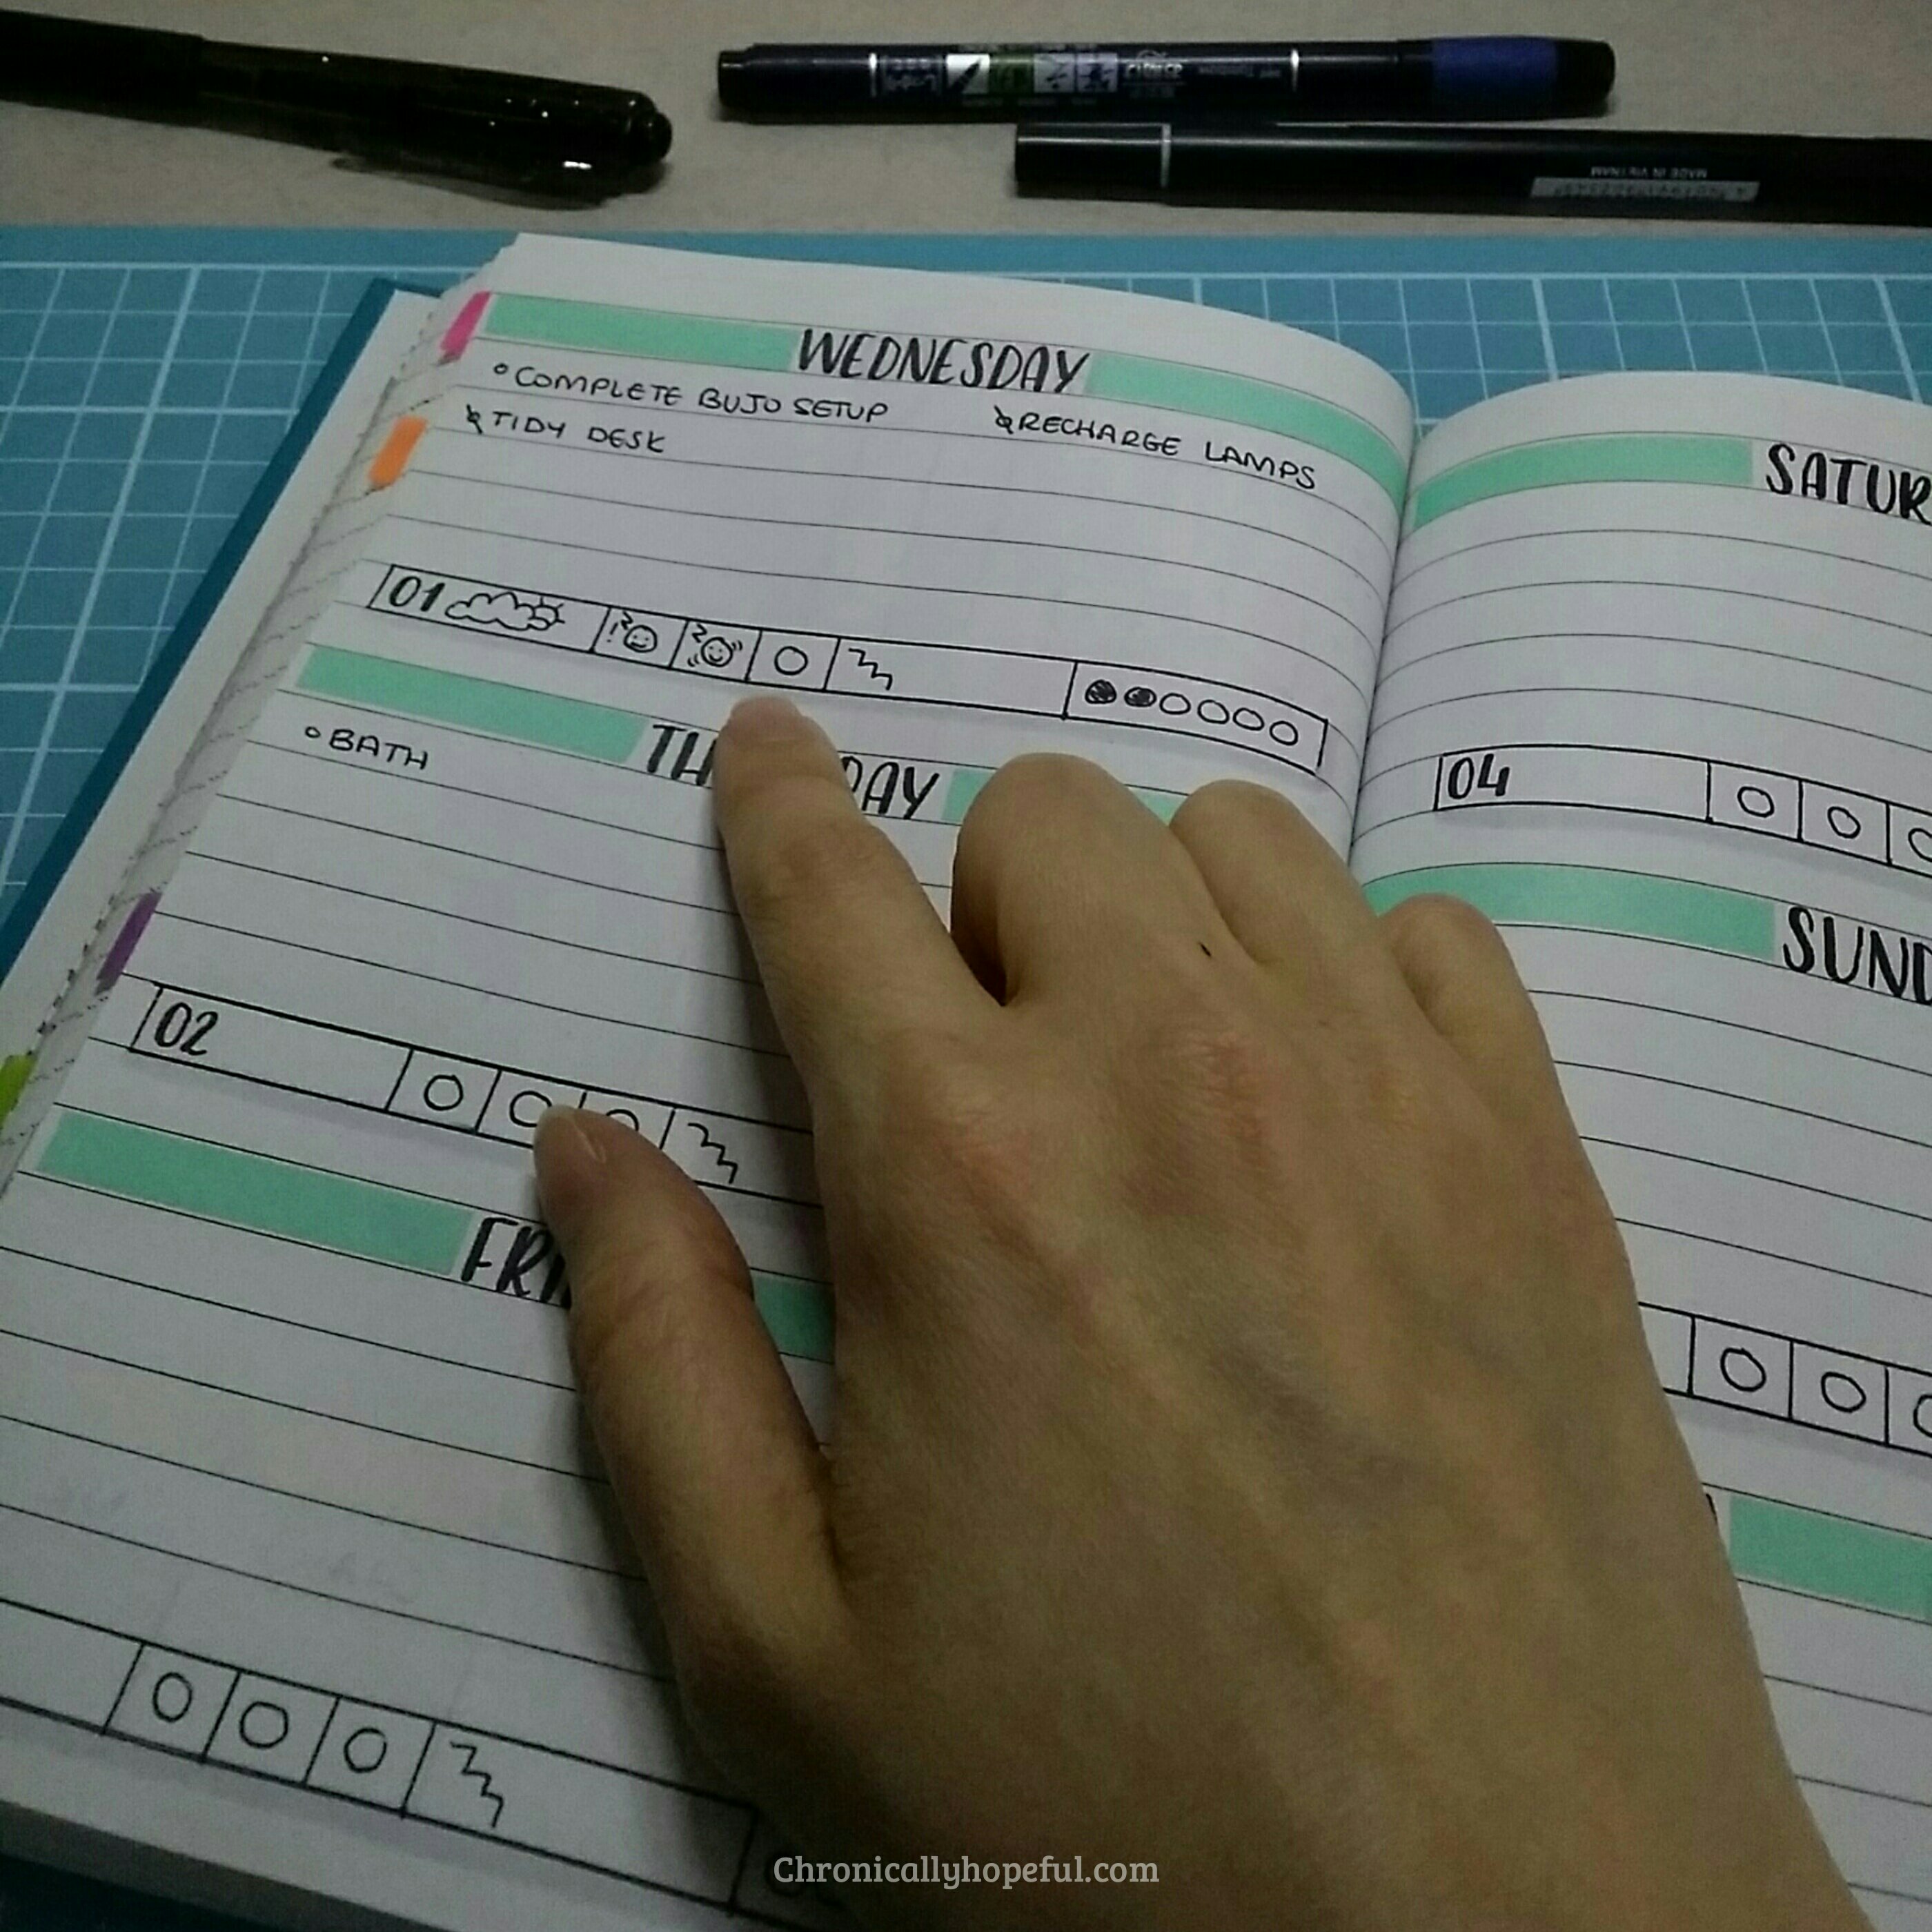 MADE IN VIETNAM
WEDNESDAY
COMPLETE BUJO SETUP
RECHARGE LAMPS
TIDY DESK
01
TH DAY
BATH
02
FRI
SATUR
04
SUND
Chronicallyhopeful.com